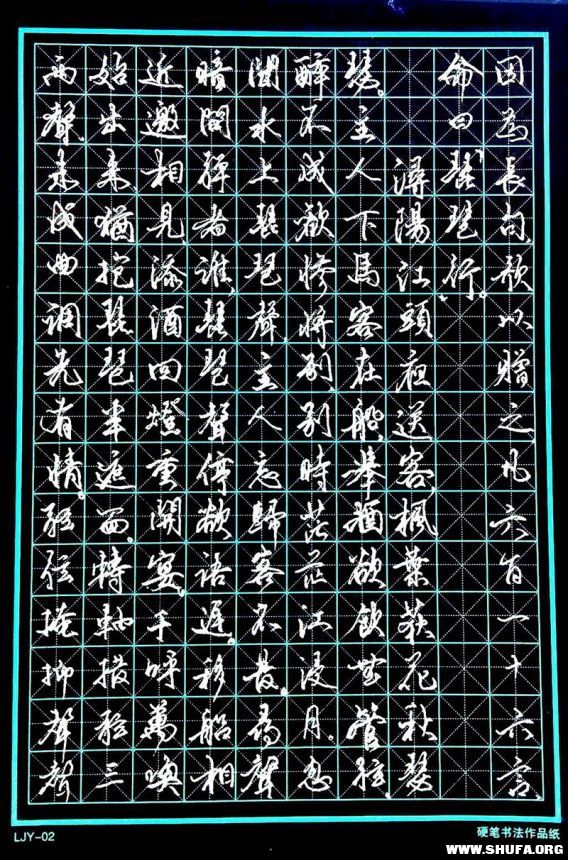 因为長句，歌以贈之，凡六百一十六言，
命曰琵琶行。
潯陽江頭夜送客，楓葉荻花秋瑟
瑟。主人下馬客在船，舉酒欲飲無管弦。
醉不成歡慘將別，別時茫茫江浸月。忽
聞水上琵琶聲，主人忘歸客不發。尋聲
暗問彈者誰，琵琶聲停欲語遲。移船相
近邀相見，添酒回燈重開宴。千呼萬喚
始出來，猶抱琵琶半遮面。轉軸撥弦三
兩聲，未成曲調先有情。弦弦掩抑聲聲
LJY-02
硬笔书法作品纸
WWW.SHUFA.ORG